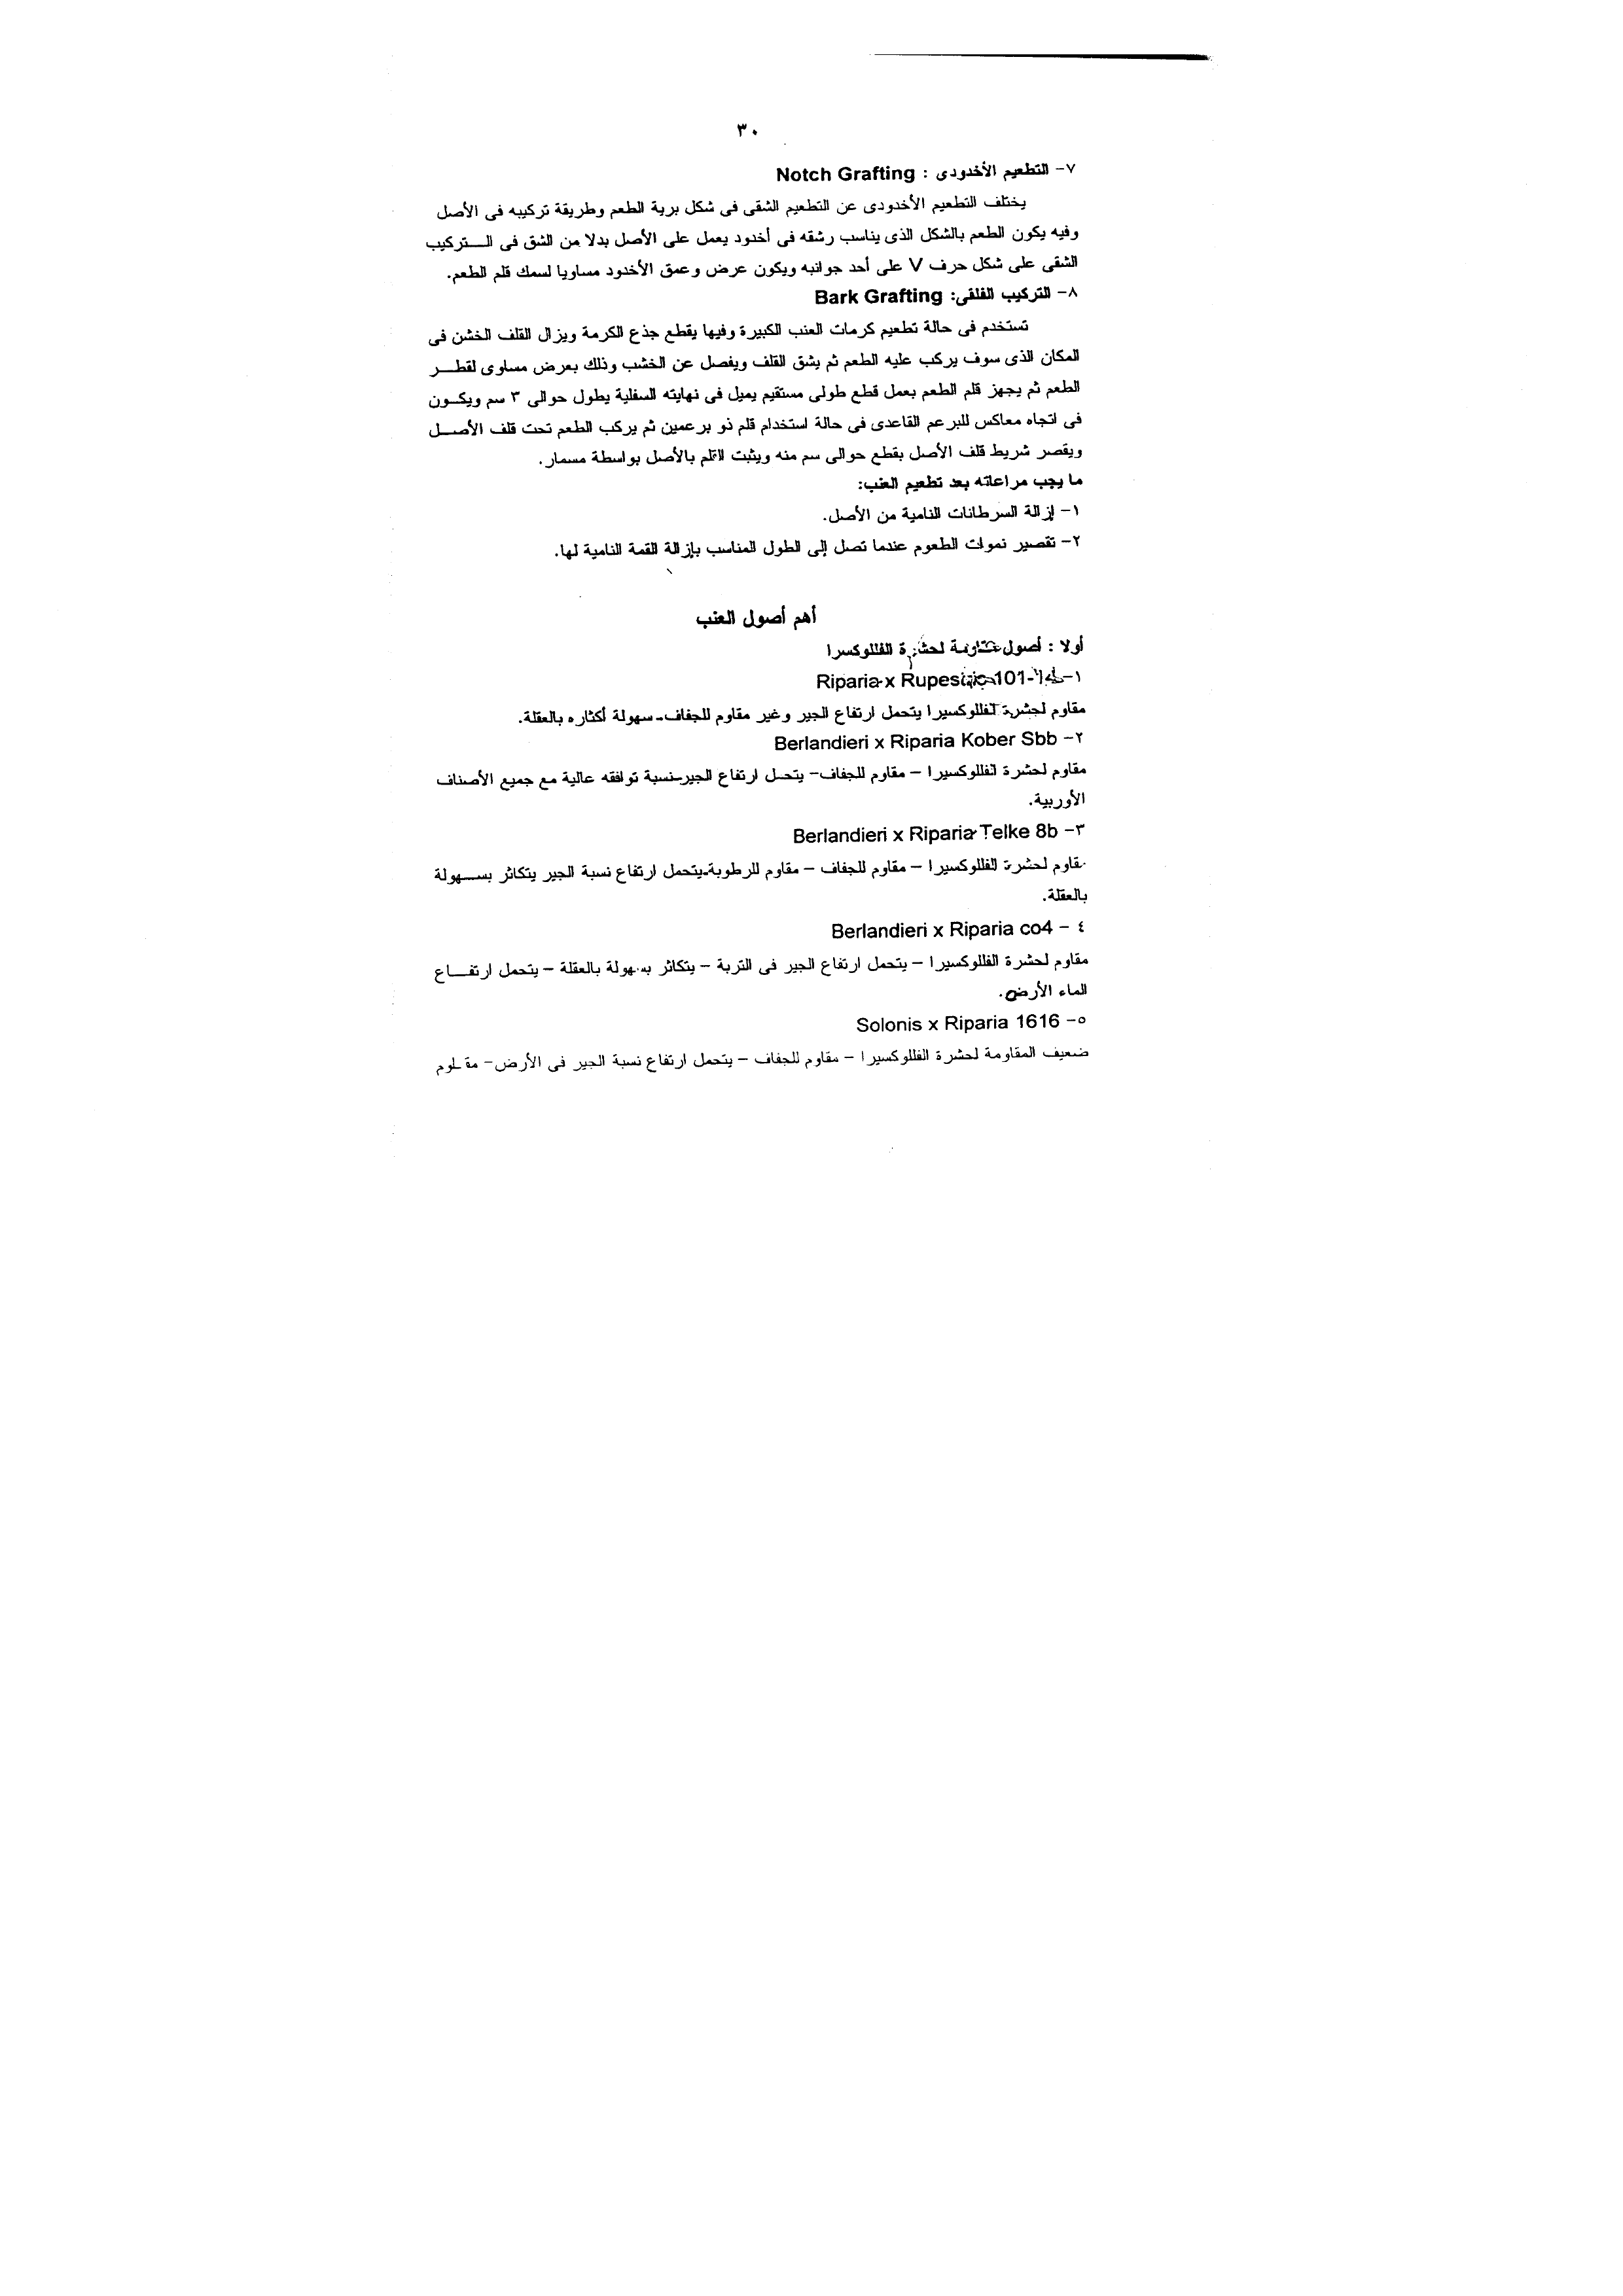 ٣٠
٧- التطعيم الأخدودى : Notch Grafting
يختلف التطعيم الأخدودى عن التطعيم الشقى فى شكل برية الطعم وطريقة تركيبه فى الأصل
وفيه يكون الطعم بالشكل الذى يناسب رشقه فى أخدود يعمل على الأصل بدلا من الشق فى التركيب
الشقى على شكل حرف V على أحد جوانبه ويكون عرض وعمق الأخدود مساويا لسمك قلم الطعم.
٨- التركيب القلفى: Bark Grafting
تستخدم فى حالة تطعيم كرمات العنب الكبيرة وفيها يقطع جذع الكرمة ويزال القلف الخشن فى
المكان الذى سوف يركب عليه الطعم ثم يشق القلف ويفصل عن الخشب وذلك بعرض مساوى لقطر
الطعم ثم يجهز قلم الطعم بعمل قطع طولى مستقيم يميل فى نهايته السفلية يطول حوالى ٣ سم ويكون
فى اتجاه معاكس للبرعم القاعدى فى حالة استخدام قلم ذو برعمين ثم يركب الطعم تحت قلف الأصل
ويقصر شريط قلف الأصل بقطع حوالى سم منه ويثبت القلم بالأصل بواسطة مسمار.
ما يجب مراعاته بعد تطعيم العنب:
١- إزالة السرطانات النامية من الأصل.
٢- تقصير نموات الطعوم عندما تصل إلى الطول المناسب بإزالة القمة النامية لها.
أهم أصول العنب
أولا : أصول مقاومة لحشرة الفللوكسرا
١- Riparia x Rupestris 101-14
مقاوم لحشرة الفللوكسيرا يتحمل ارتفاع الجير وغير مقاوم للجفاف- سهولة أكثاره بالعقلة.
٢- Berlandieri x Riparia Kober Sbb
مقاوم لحشرة الفللوكسيرا - مقاوم للجفاف- يتحمل ارتفاع الجير-نسبة توافقه عالية مع جميع الأصناف
الأوربية.
٣- Berlandieri x Riparia Telke 8b
مقاوم لحشرة الفللوكسيرا - مقاوم للجفاف - مقاوم للرطوبة-يتحمل ارتفاع نسبة الجير يتكاثر بسهولة
بالعقلة.
٤ - Berlandieri x Riparia co4
مقاوم لحشرة الفللوكسيرا - يتحمل ارتفاع الجير فى التربة - يتكاثر بسهولة بالعقلة - يتحمل ارتفاع
الماء الأرض.
٥- Solonis x Riparia 1616
ضعيف المقاومة لحشرة الفللوكسيرا - مقاوم للجفاف - يتحمل ارتفاع نسبة الجير فى الأرض- مقاوم